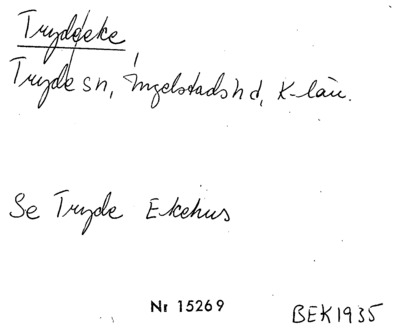 Trydeeke
Tryde sn, Ingelstads hd, K-län.
Se Tryde Ekehus
Nr 15269 BEK1935